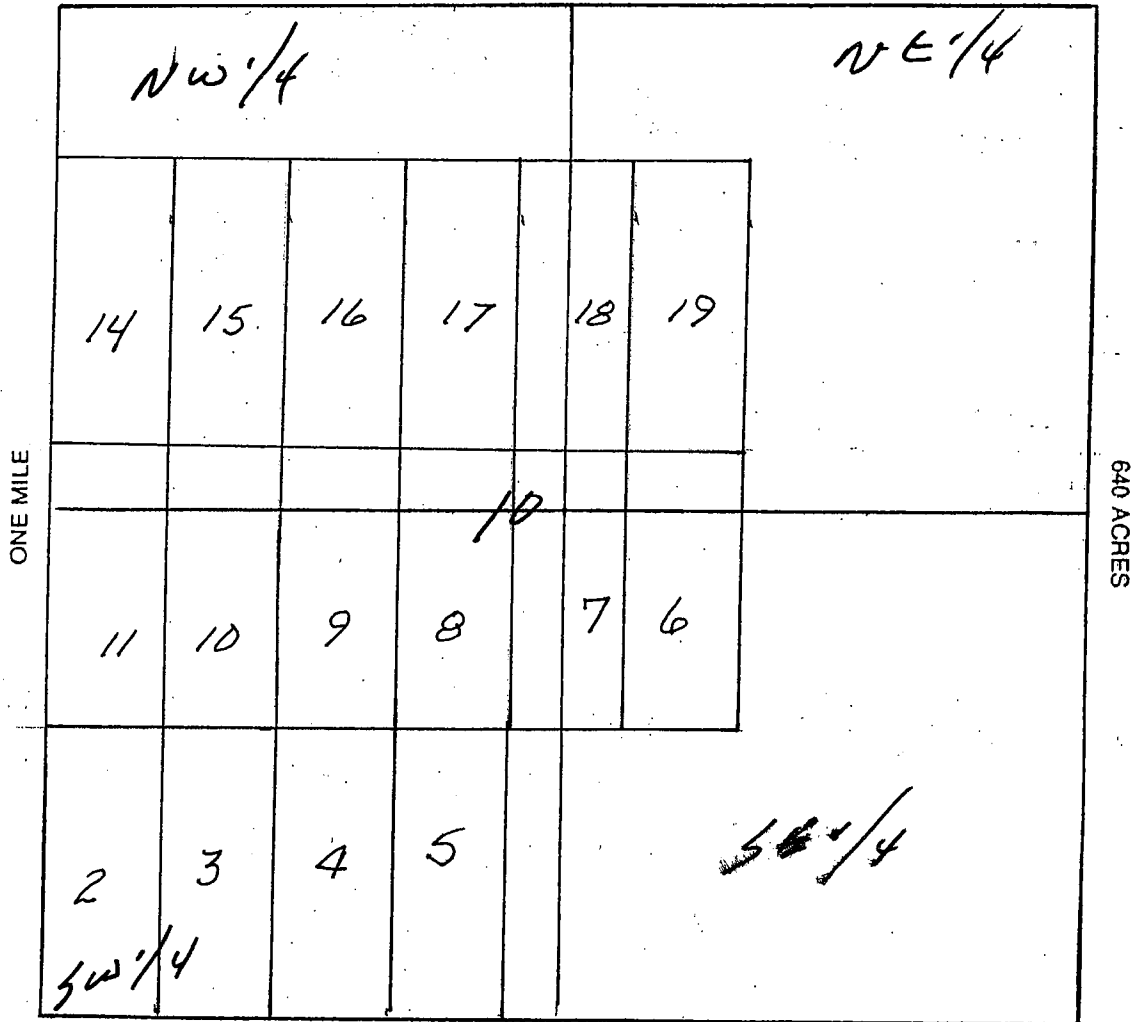 NW 1/4
NE 1/4
14 15 16 17 18 19
ONE MILE
640 ACRES
10
11 10 9 8 7 6
2 3 4 5
SE 1/4
SW 1/4